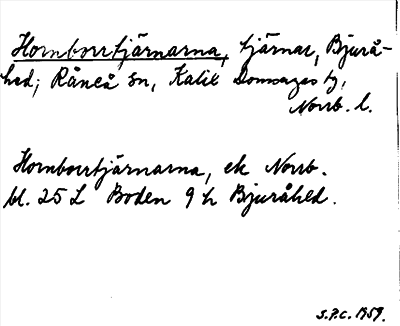 Hornborrtjärnarna, tjärnar, Bjurå-
hed, Råneå sn, Kalix Domsagas tg,
Norrb. l.
Hornborrtjärnarna, ek Norrb.
bl. 25 L Boden 9 h Bjuråhed.
S.P.C. 1959.